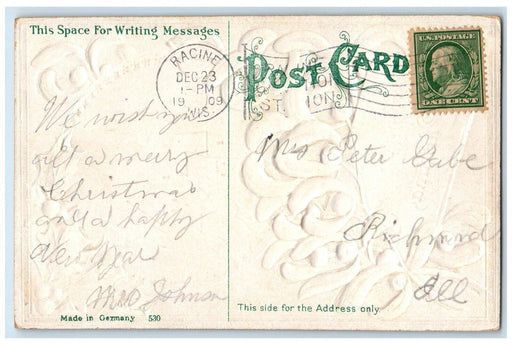 This Space For Writing Messages
RACINE
DEC 23
1-PM
19 09
WIS
POST CARD
U.S. POSTAGE
ONE CENT
We wish you
all a merry
Christmas
and a happy
New Year
Mrs Johnson
Mrs Peter Gabe
Richmond
Ill
This side for the Address only.
Made in Germany 530